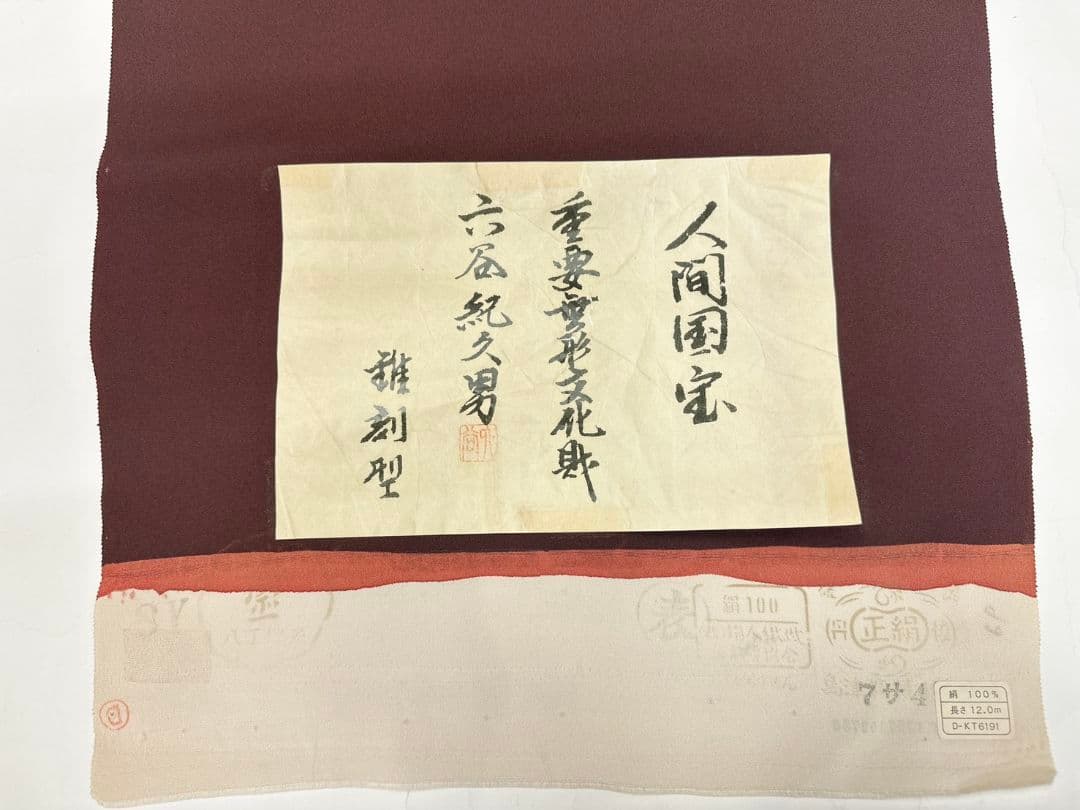 人間国宝
重要無形文化財
六谷紀久男
錐刻型
絹100
表
正絹
丹
7サ4
絹 100%
長さ 12.0m
D-KT6191